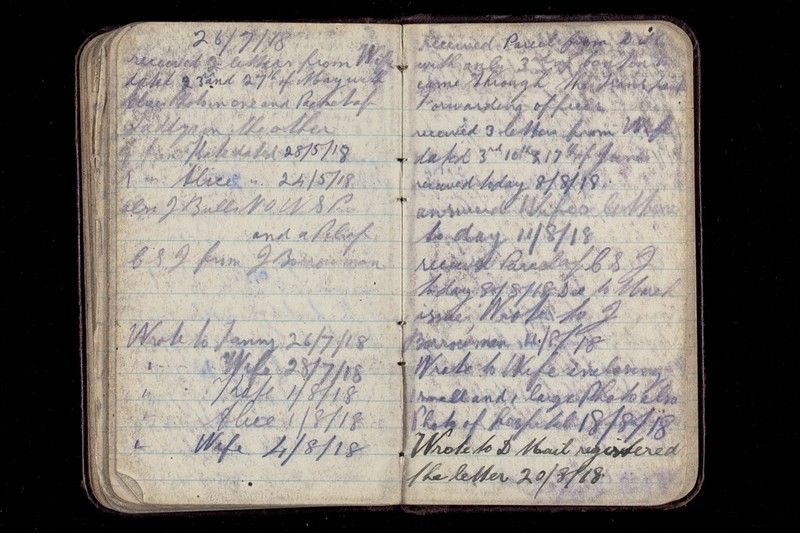 26/7/18
received 2 letters from Wife
dated 23 and 27th of May with
Photos in one and Packet of
in the other
Kate dated 28/5/18
1 " Alice " 24/5/18
J Bulls N O W S P
and a P of
C & J from J Borrowman
Wrote to Fanny 26/7/18
" Wife 28/7/18
" 1/8/18
" Alice 1/8/18
" Wife 4/8/18
received Parcel from
with only 3
came through the
Forwarding officer
received 3 letters from Wife
dated 3rd 10th & 17th of June
received today 8/8/18
answered Wifes letters
to day 11/8/18
received Parcel of C & J
today 8/8/18 Due to March
issue, Wrote to J
Borrowman /8/18
Wrote to Wife enclosing
small and 1 large Photo also
Photo of hospital 18/8/18
Wrote to D Mail registered
the letter 20/8/18